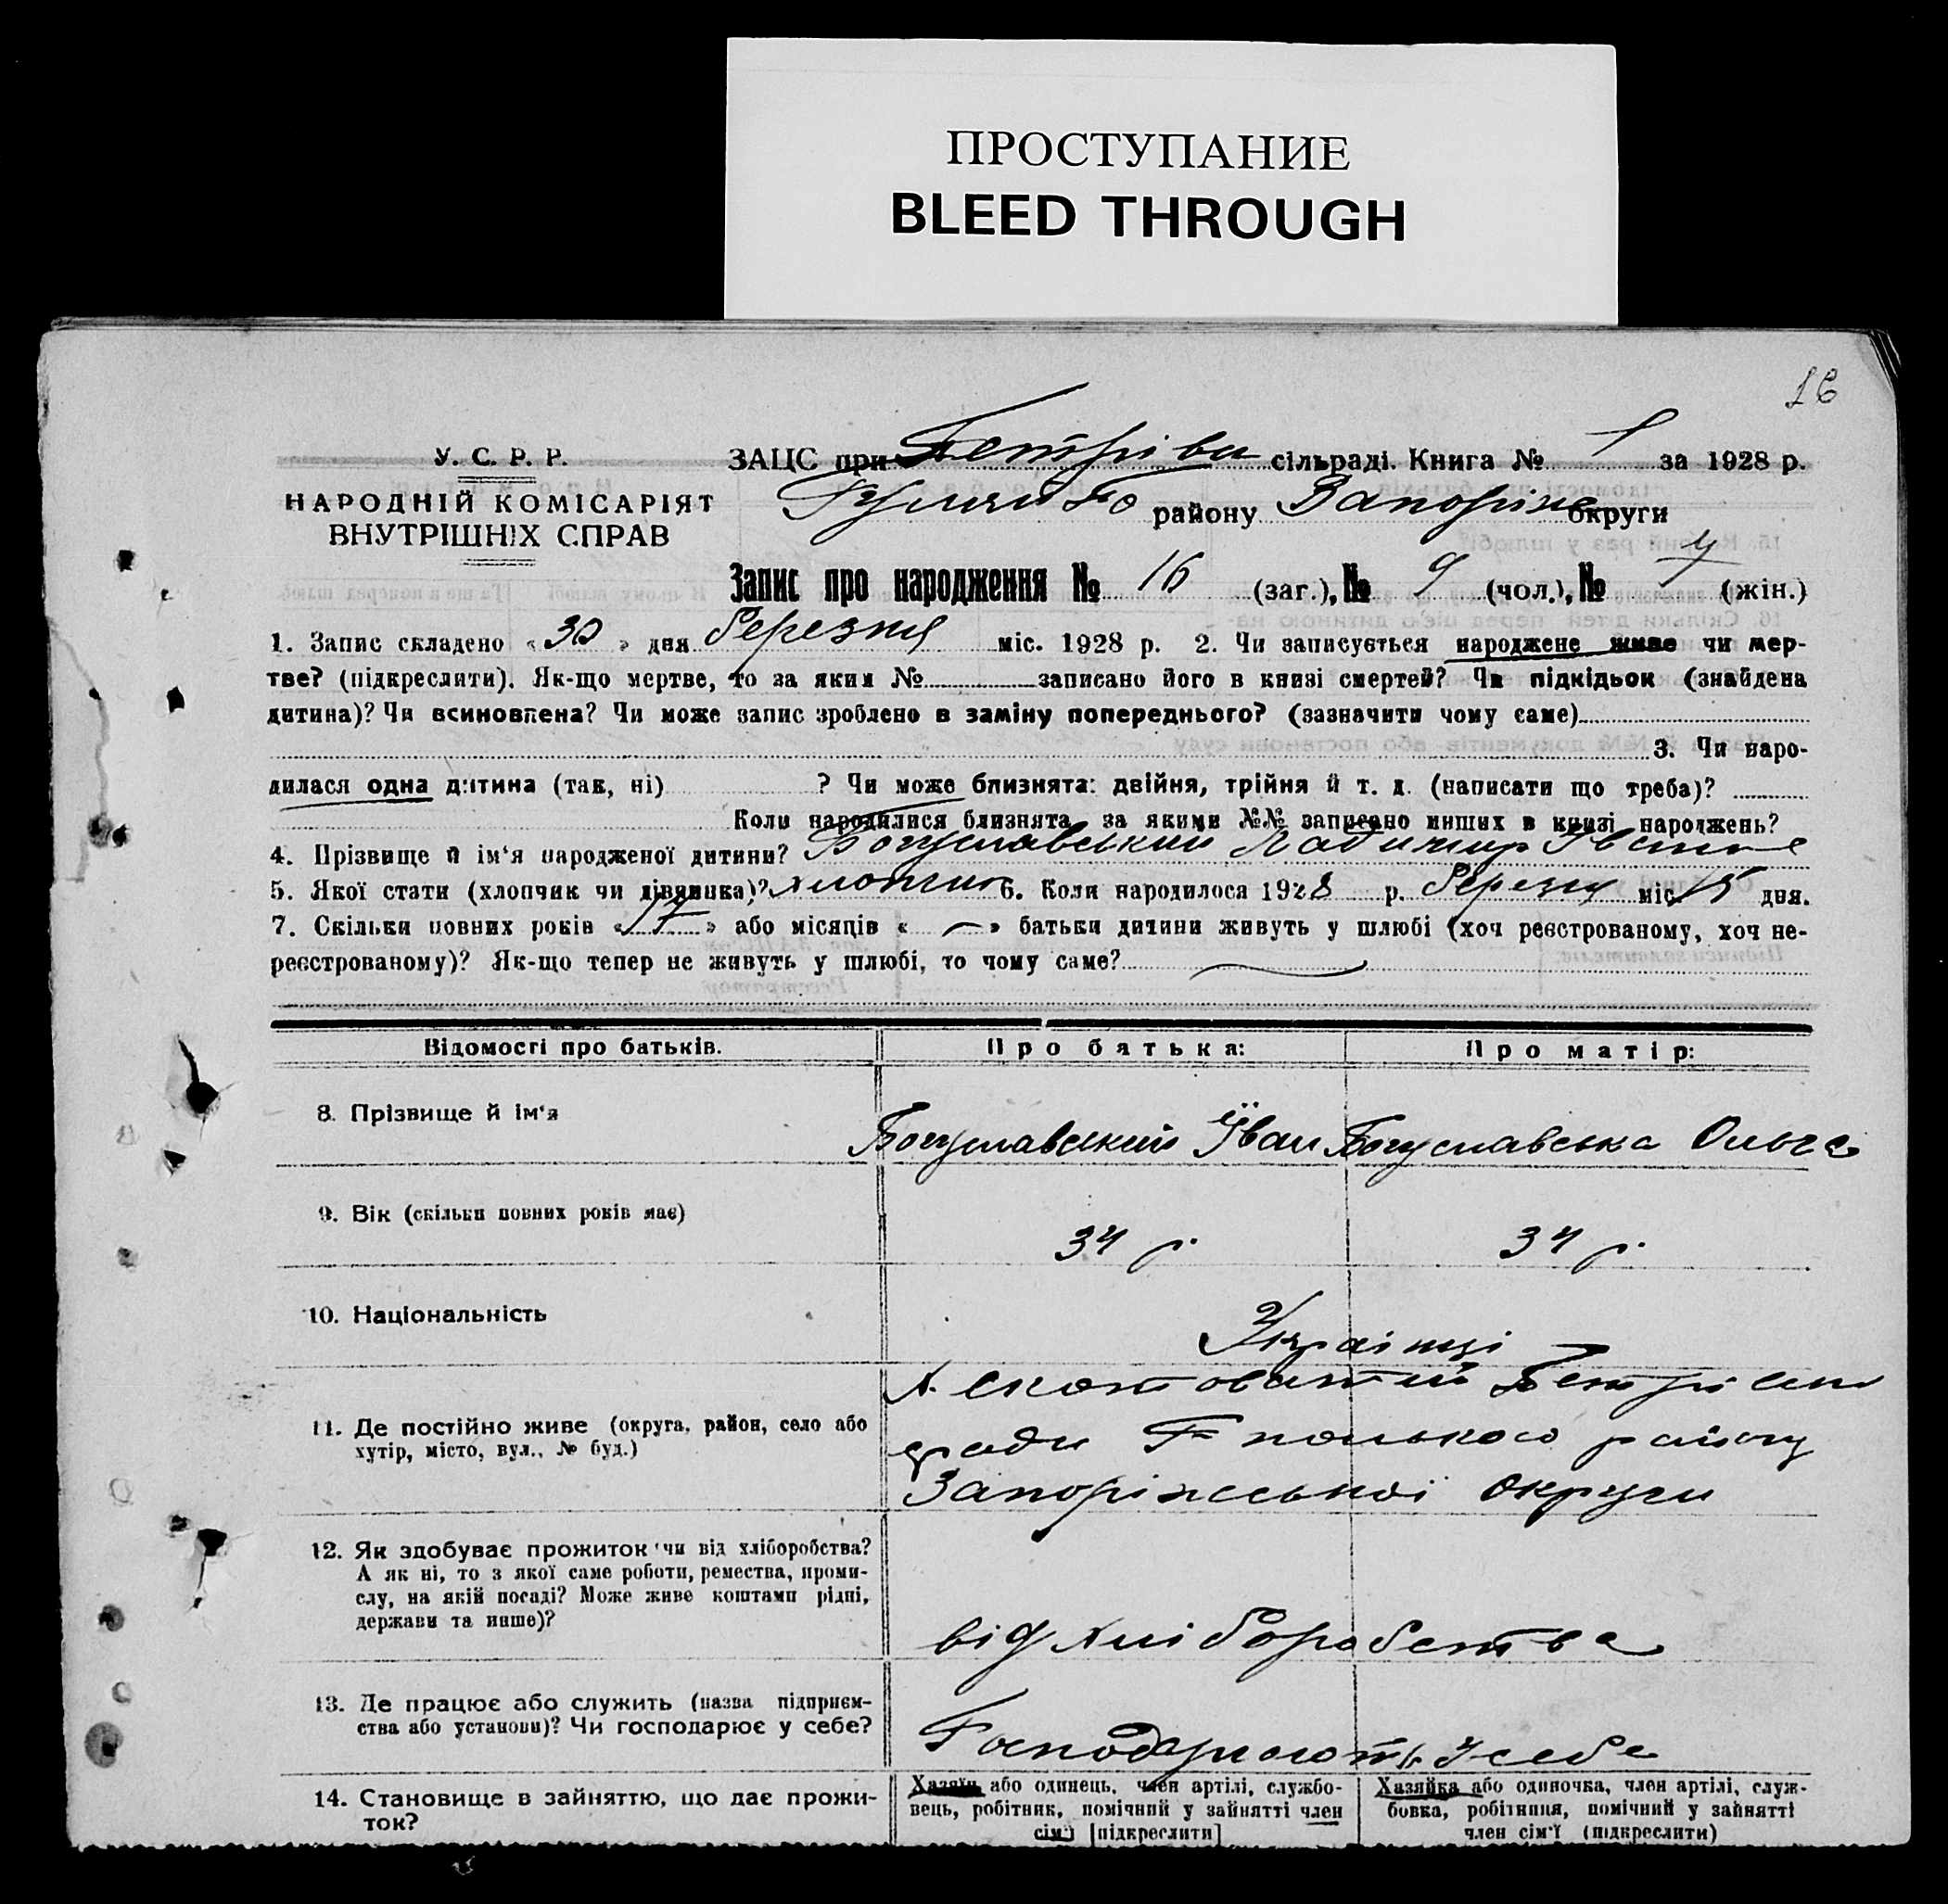 ПРОСТУПАНИЕ
BLEED THROUGH
16
У. С. Р. Р.
НАРОДНІЙ КОМІСАРІЯТ
ВНУТРІШНІХ СПРАВ
ЗАЦС при сільраді. Книга № 1 за 1928 р.
району Запоріж округи
Запис про народження № 16 (заг.), № 9 (чол.), № 7 (жін.)
1. Запис складено « 30 » дня березня міс. 1928 р. 2. Чи записується народжене живе чи мер-
тве? (підкреслити). Як-що мертве, то за яким № записано його в книзі смертей? Чи підкідьок (знайдена
дитина)? Чи всиновлена? Чи може запис зроблено в заміну попереднього? (зазначити чому саме)
3. Чи наро-
дилася одна дитина (так, ні) ? Чи може близнята: двійня, трійня й т. д. (написати що треба)?
Коли народилися близнята, за якими №№ записано инших в книзі народжень?
4. Прізвище й ім'я народженої дитини? Богуславський Ладимир Іванов
5. Якої стати (хлопчик чи дівчинка)? хлопчик 6. Коли народилося 1928 р. березня міс. 15 дня.
7. Скільки повних років « 17 » або місяців « — » батьки дитини живуть у шлюбі (хоч реєстрованому, хоч не-
реєстрованому)? Як-що тепер не живуть у шлюбі, то чому саме?
Відомості про батьків. Про батька: Про матір:
8. Прізвище й ім'я Богуславський Іван Богуславська Ольга
9. Вік (скільки повних років має) 34 р. 34 р.
10. Національність Українці
11. Де постійно живе (округа, район, село або
хутір, місто, вул., № буд.)
х. Скотоватий Петрі сіль
ради Г польского району
Запоріжської округи
12. Як здобуває прожиток чи від хліборобства?
А як ні, то з якої саме роботи, ремества, проми-
слу, на якій посаді? Може живе коштами рідні,
держави та инше)?
від хліборобства
13. Де працює або служить (назва підприєм-
ства або установи)? Чи господарює у себе?
Господарюють у себе
14. Становище в зайняттю, що дає прожи-
ток?
Хазяїн або одинець, член артілі, службо-
вець, робітник, помічний у зайнятті член
сім'ї [підкреслити]
Хазяйка або одиночка, член артілі, служ-
бовка, робітниця, помічний у зайнятті
член сім'ї (підкреслити)